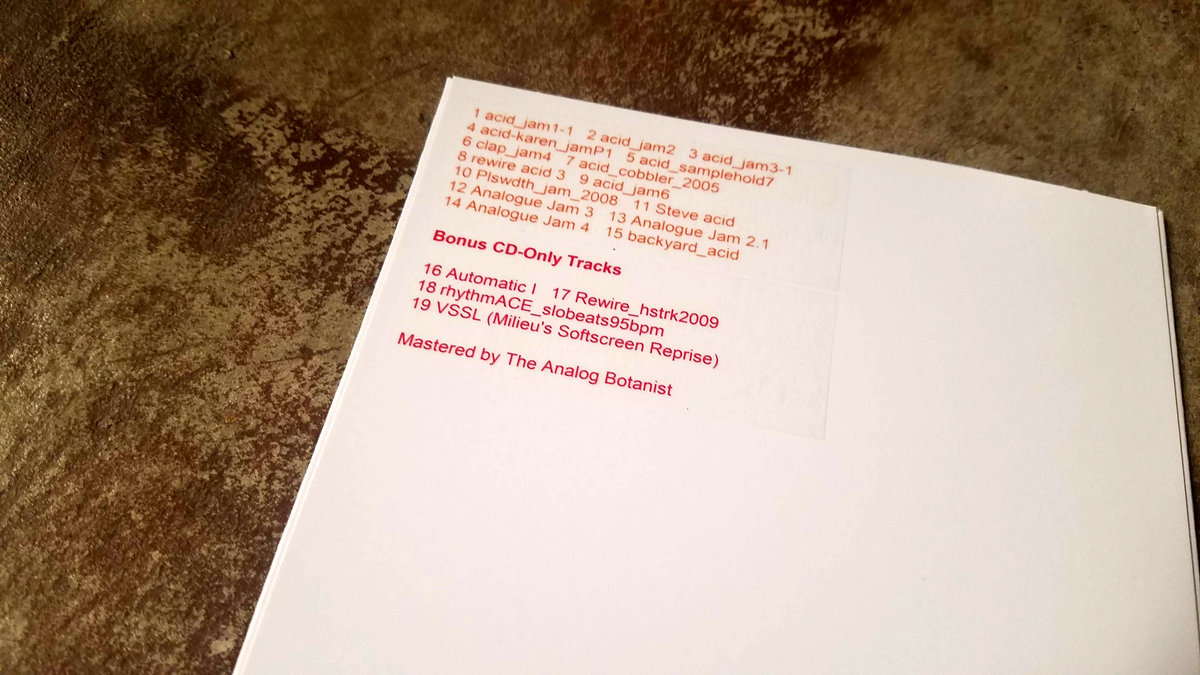 1 acid_jam1-1 2 acid_jam2 3 acid_jam3-1
4 acid-karen_jamP1 5 acid_samplehold7
6 clap_jam4 7 acid_cobbler_2005
8 rewire acid 3 9 acid_jam6
10 Plswdth_jam_2008 11 Steve acid
12 Analogue Jam 3 13 Analogue Jam 2.1
14 Analogue Jam 4 15 backyard_acid
Bonus CD-Only Tracks
16 Automatic I 17 Rewire_hstrk2009
18 rhythmACE_slobeats95bpm
19 VSSL (Milieu's Softscreen Reprise)
Mastered by The Analog Botanist